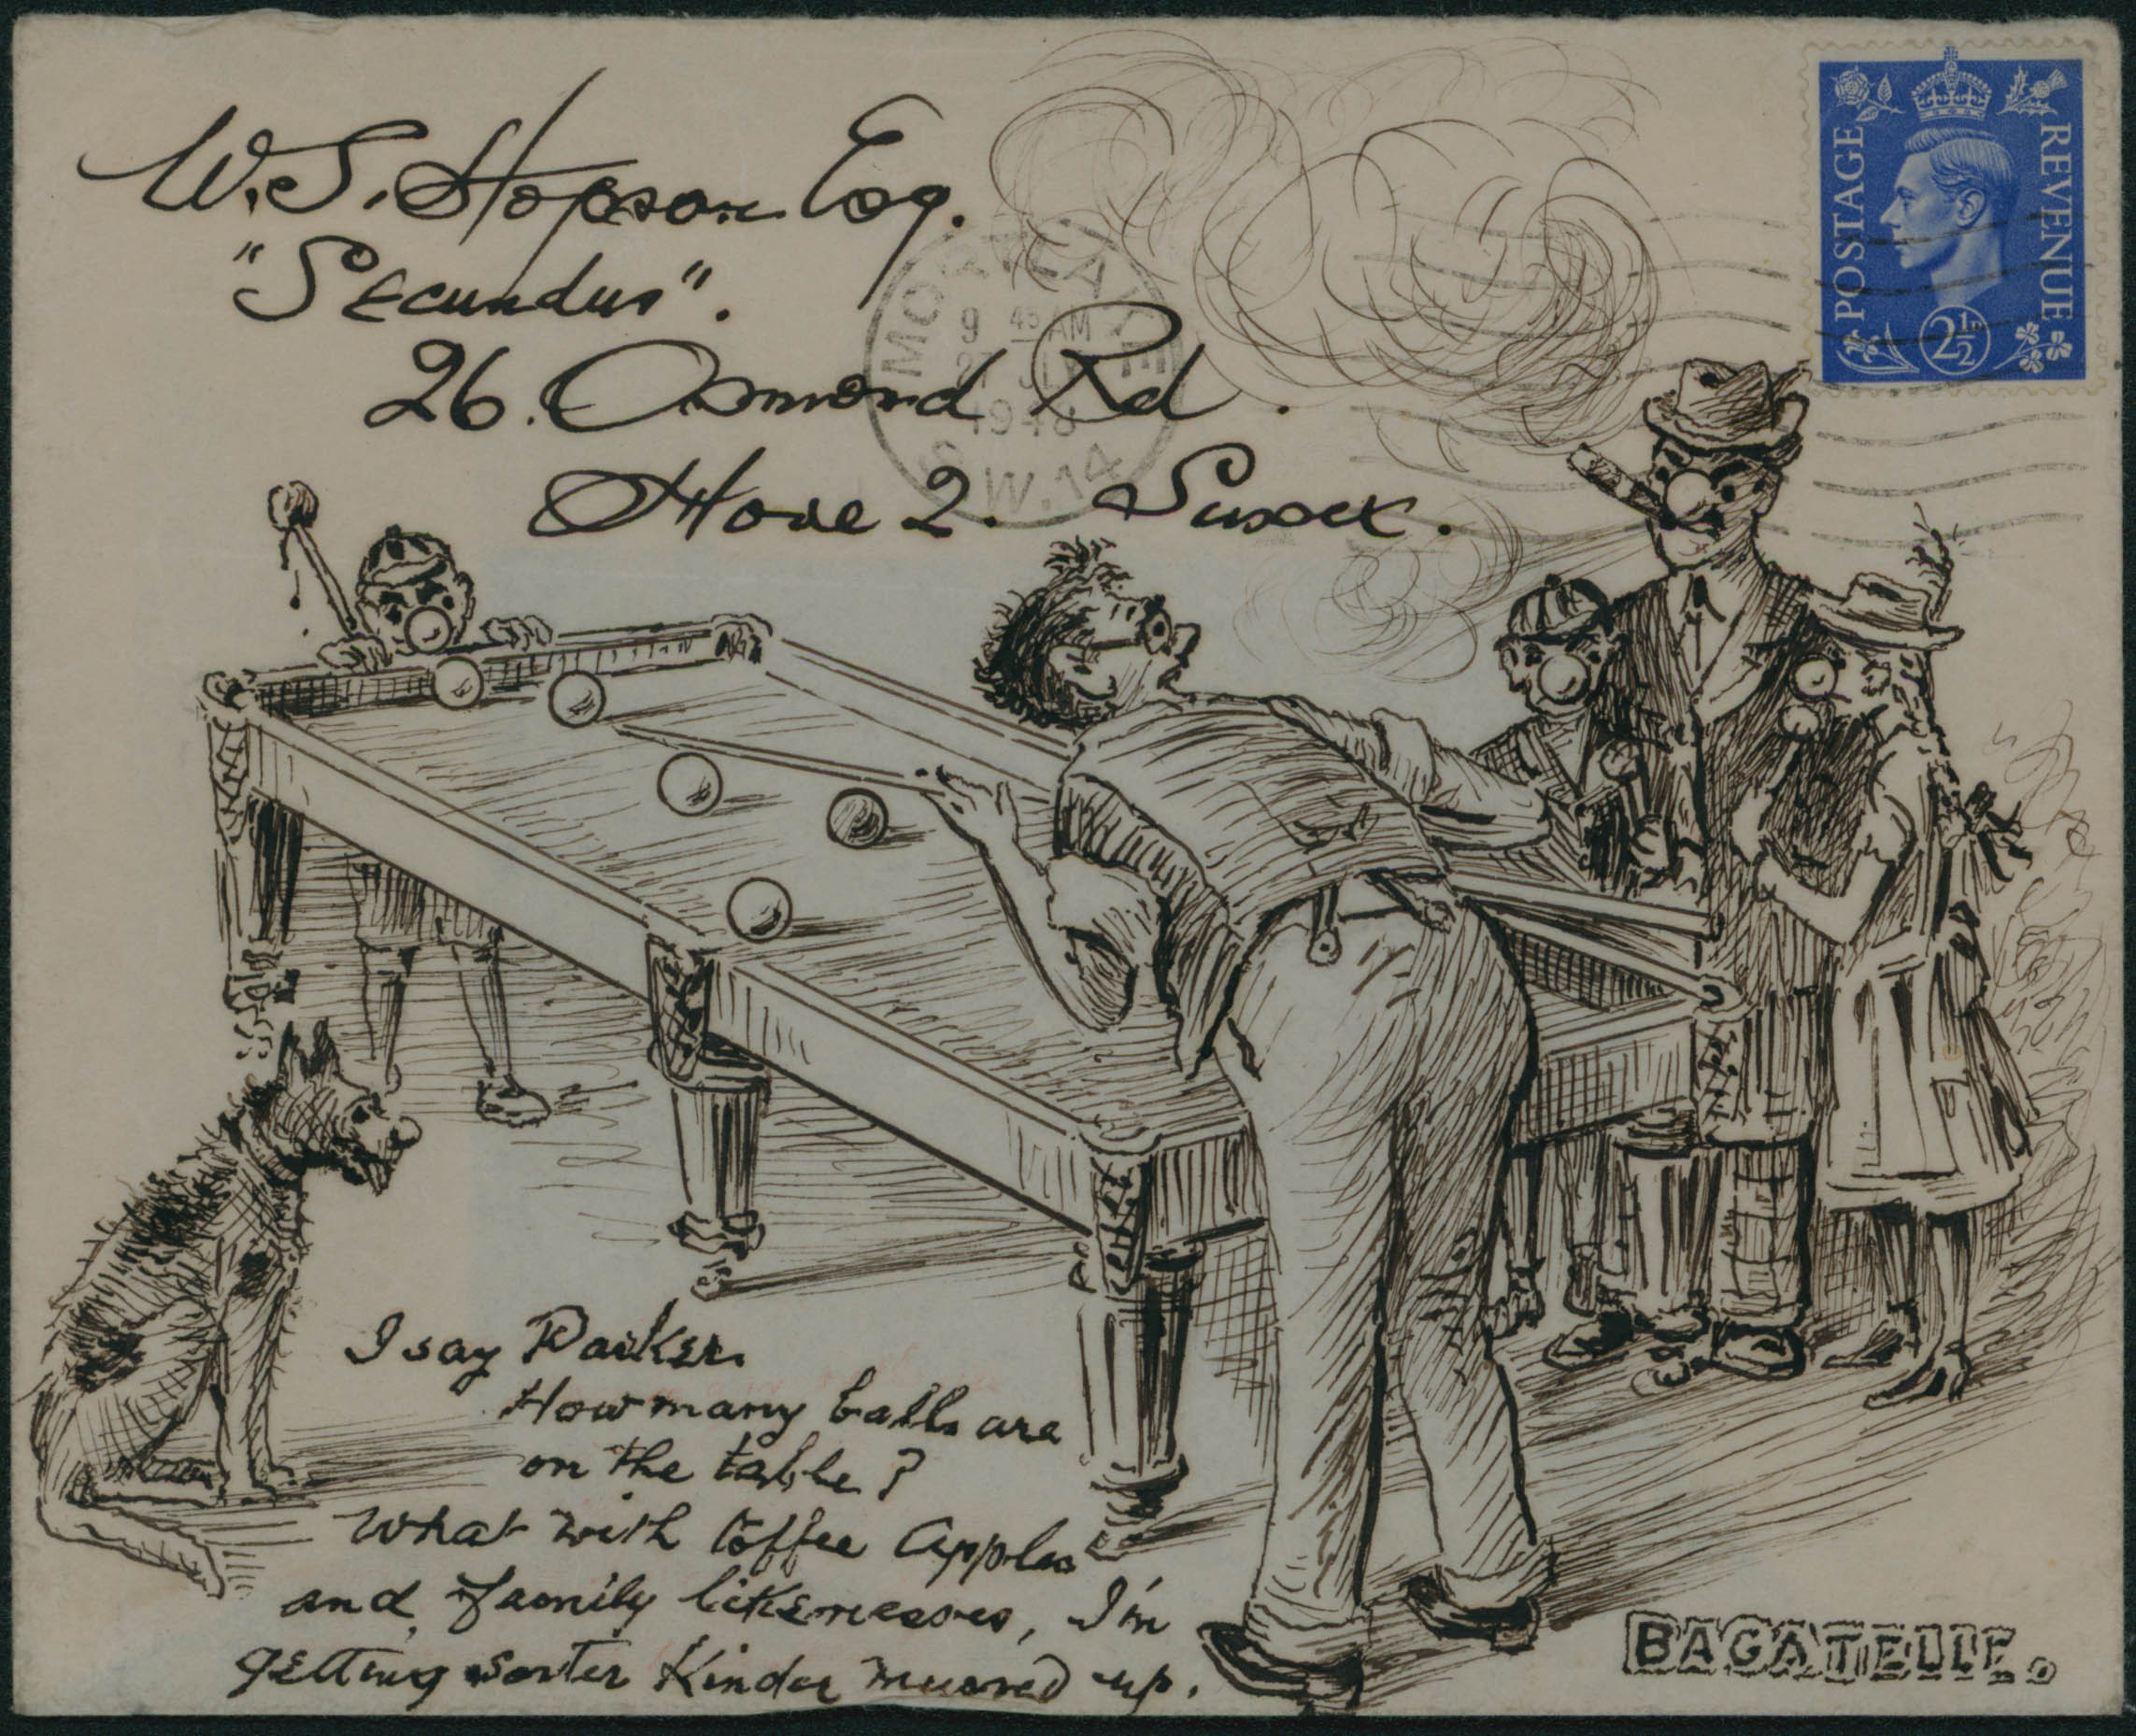 W.S. Hopson Esq.
"Secundus".
26. Osmond Rd.
Hove 2. Sussex.
MORTLAKE
9 45 AM
27 JLY
1948
S.W.14
POSTAGE
REVENUE
2½D
I say Parker.
How many balls are
on the table?
What with toffee apples
and family likenesses, I'm
getting sorter kinder muxed up.
BAGATELLE.